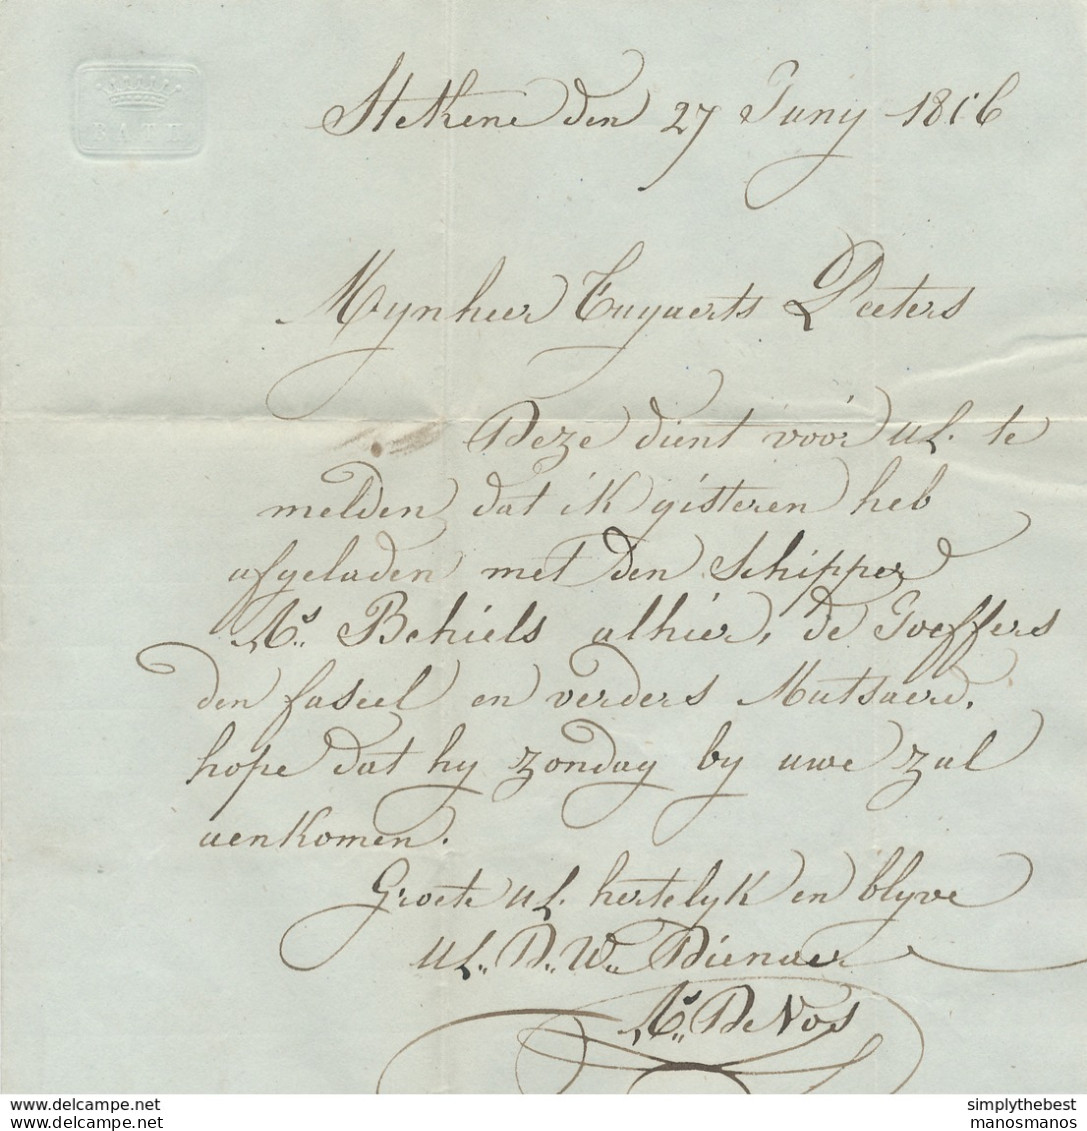 BATH
Stekene den 27 Juny 1856
Mynheer Tuyaerts Peeters
Deze dient voor UL. te
melden dat ik gisteren heb
afgeladen met den Schipper
Behiels alhier, de
den faseel en verders Mutsaerd,
hope dat hy zondag by uwe zal
aenkomen.
Groete UL. hertelyk en blyve
UL. D. W. Dienaer
De Vos
simplythebest
manosmanos